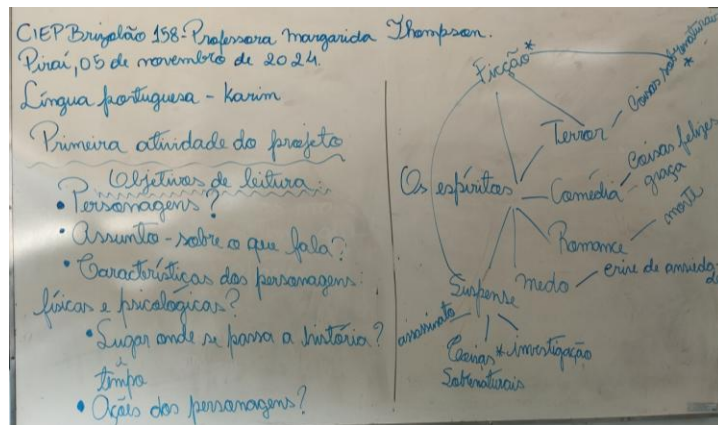 CIEP Brizolão 158 - Professora Margarida Thompson.
Piraí, 05 de novembro de 2024.
Língua portuguesa - Karim
Primeira atividade do projeto
Objetivos de leitura:
• Personagens?
• Assunto - sobre o que fala?
• Características dos personagens:
físicas e psicologicas?
• Lugar onde se passa a história?
e
tempo
• Ações dos personagens?
Ficção *
Coisas sobrenaturais
*
Terror
Os espíritos
Comédia
Coisas felizes
graça
Romance
morte
medo
crise de ansieda
Suspense
assassinato
Coisas * investigação
Sobrenaturais